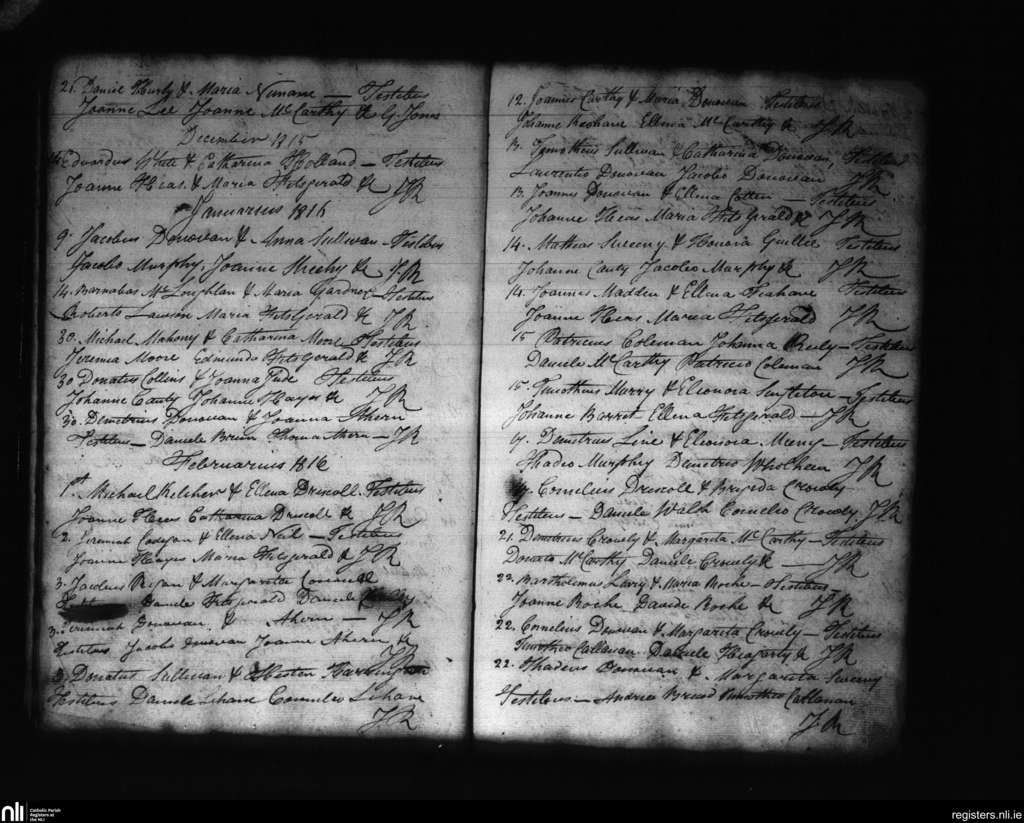 21. Daniel Hurly & Maria Nunane — Testibus
Joanne Lee Joanne McCarthy & G. Jones
December 1815
Edvardus White & Catharina Holland — Testibus
Joanne Heas. & Maria Fitsgerald & JR
Januarius 1816
9. Jacobus Donovan & Anna Sullivan — Testibus
Jacobo Murphy, Joanne Meehy & JR
14. Barnabas McLoughlan & Maria Gardner — Testibus
Roberto Lawson Maria FitsGerald & JR
30. Michael Mahony & Catharina Moore Testibus
Jeremia Moore Edmundo FitsGerald & JR
30 Donatus Collins & Joanna Jude Testibus
Johanne Canty Johanne Hayes & JR
30. Demetrius Donovan & Joanna Ahern
Testibus — Daniele Brien Thoma Ahern — JR
Februarius 1816
1st. Michael Kelcher & Ellena Driscoll. Testibus
Joanne Heas Catharina Driscoll & JR
2. Jeremiah & Ellena Neil — Testibus
Joanne Hayes Maria Fitzgerald & JR
3. Jacobus Regan & Margareta Connell
Daniele Fitsgerald Daniele
3. Jeremiah Donovan, & Ahern — JR
Testibus Jacobo Donovan Joanne Ahern &
JR
3 Donatus Sullivan & Hesten Harrington
Testibus Daniele Lehane Cornelio Lehane
JR
12. Joannes Carthy & Maria Donovan Testibus
Johanne Keohane Ellena McCarthy & JR
13. Timotheus Sullivan & Catharina Donovan, Testibus
Laurentio Donovan Jacobo Donovan JR
13. Joannes Donovan & Ellena Cotter — Testibus
Johanne Heas Maria FitsGerald & JR
14. Mathias Sweeny & Honora Guillee Testibus
Johanne Canty Jacobo Murphy & JR
14. Joannes Madden & Ellena Testibus
Joanne Heas Maria Fitsgerald JR
15 Patricius Coleman Johanna — Testibus
Daniele McCarthy Patricio Coleman JR
15. Timotheus Murry & Eleonora Singleton — Testibus
Johanne Barrett Ellena Fitsgerald — JR
19. Demetrius Line & Eleonora Meeny — Testibus
Thadeo Murphy Demetrio JR
Cornelius Driscoll & Brigida Crowly
Testibus — Daniele Walsh Cornelio Crowly. JR
21. Demetrius Crowly & Margarita McCarthy — Testibus
Donato McCarthy Daniele Crowly & — JR
22. Bartholomeus Lary & Maria Roche — Testibus
Joanne Roche Davide Roche & JR
22. Cornelius Donovan & Margareta Crowly — Testibus
Timotheo Callanan Daniele Hegarty & JR
22. Thadeus Donovan & Margareta Sweeny
Testibus — Andrea Timotheo Callanan
JR
nli
Catholic Parish
Registers at
the NLI
registers.nli.ie